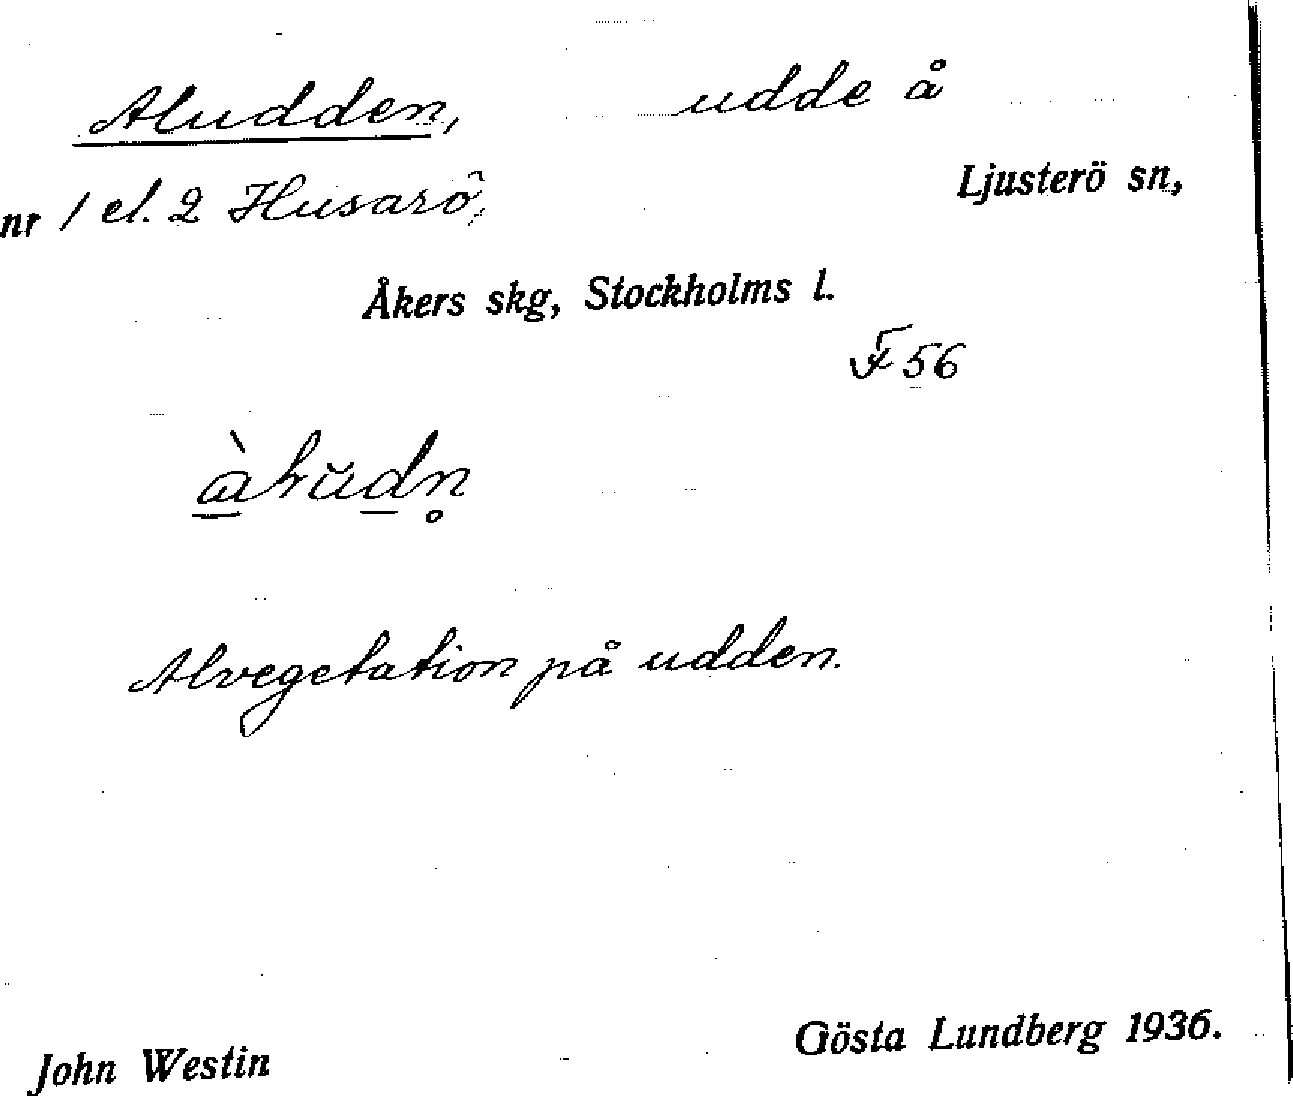 Aludden, udde å
nr 1 el. 2 Husarö, Ljusterö sn,
Åkers skg, Stockholms l.
F 56
Alvegetation på udden.
John Westin Gösta Lundberg 1936.